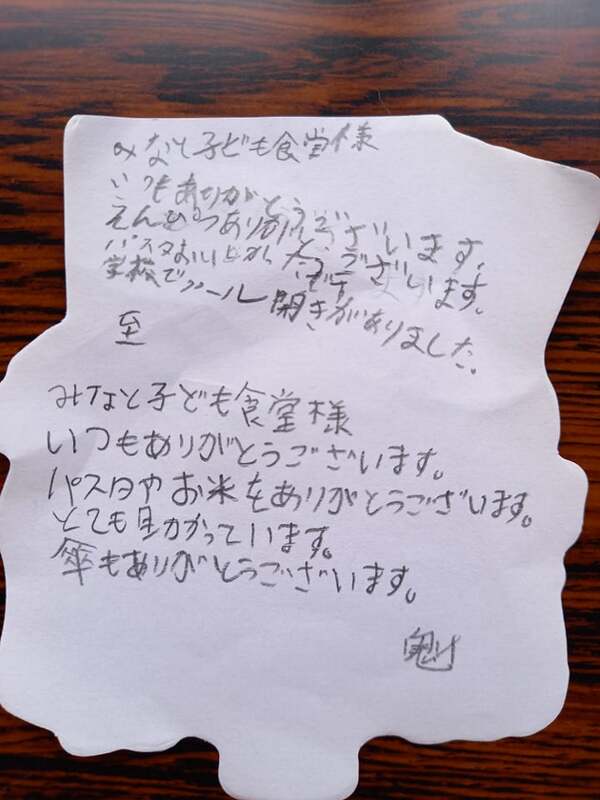 みなと子ども食堂様
いつもありがとうございます。
えんぴつありがとうございます。
パスタおいしかったです
学校でプール開きがありました。
至
みなと子ども食堂様
いつもありがとうございます。
パスタやお米をありがとうございます。
とても助かっています。
傘もありがとうございます。
魁